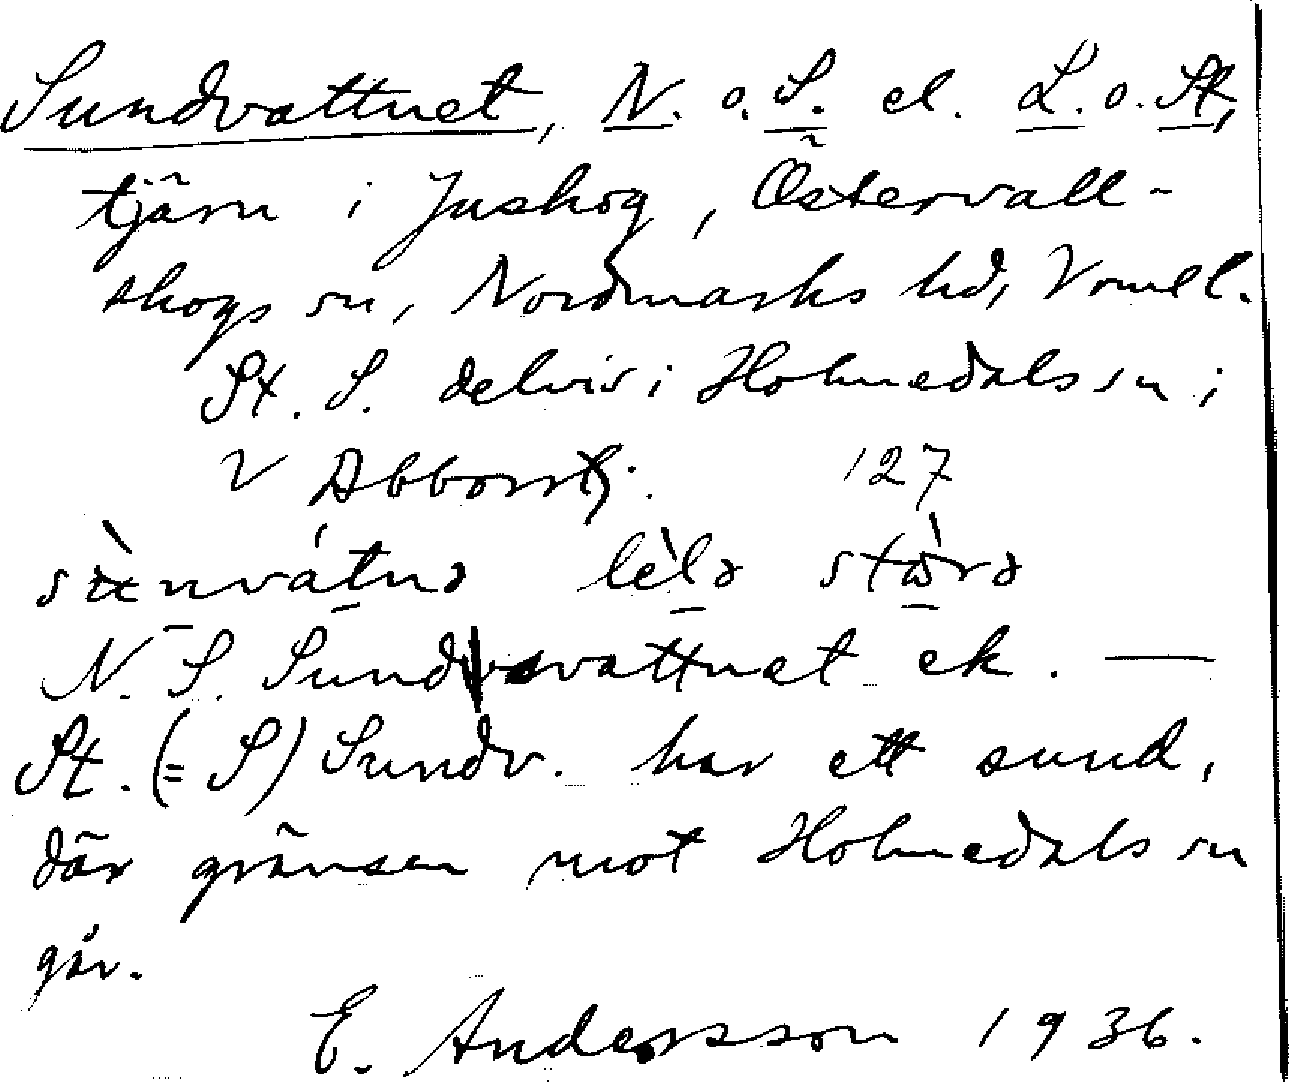 Sundvattnet, N. o. S. el. L. o. St,
tjärn i Juskog, Östervall-
skogs sn, Nordmarks hd, Vrml.
St. S. delvis i Holmedals sn;
V Abborrtj. 127
N. S. Sundvattnet ek. —
St. (= S) Sundv. har ett sund,
där gränsen mot Holmedals sn
går.
E. Andersson 1936.